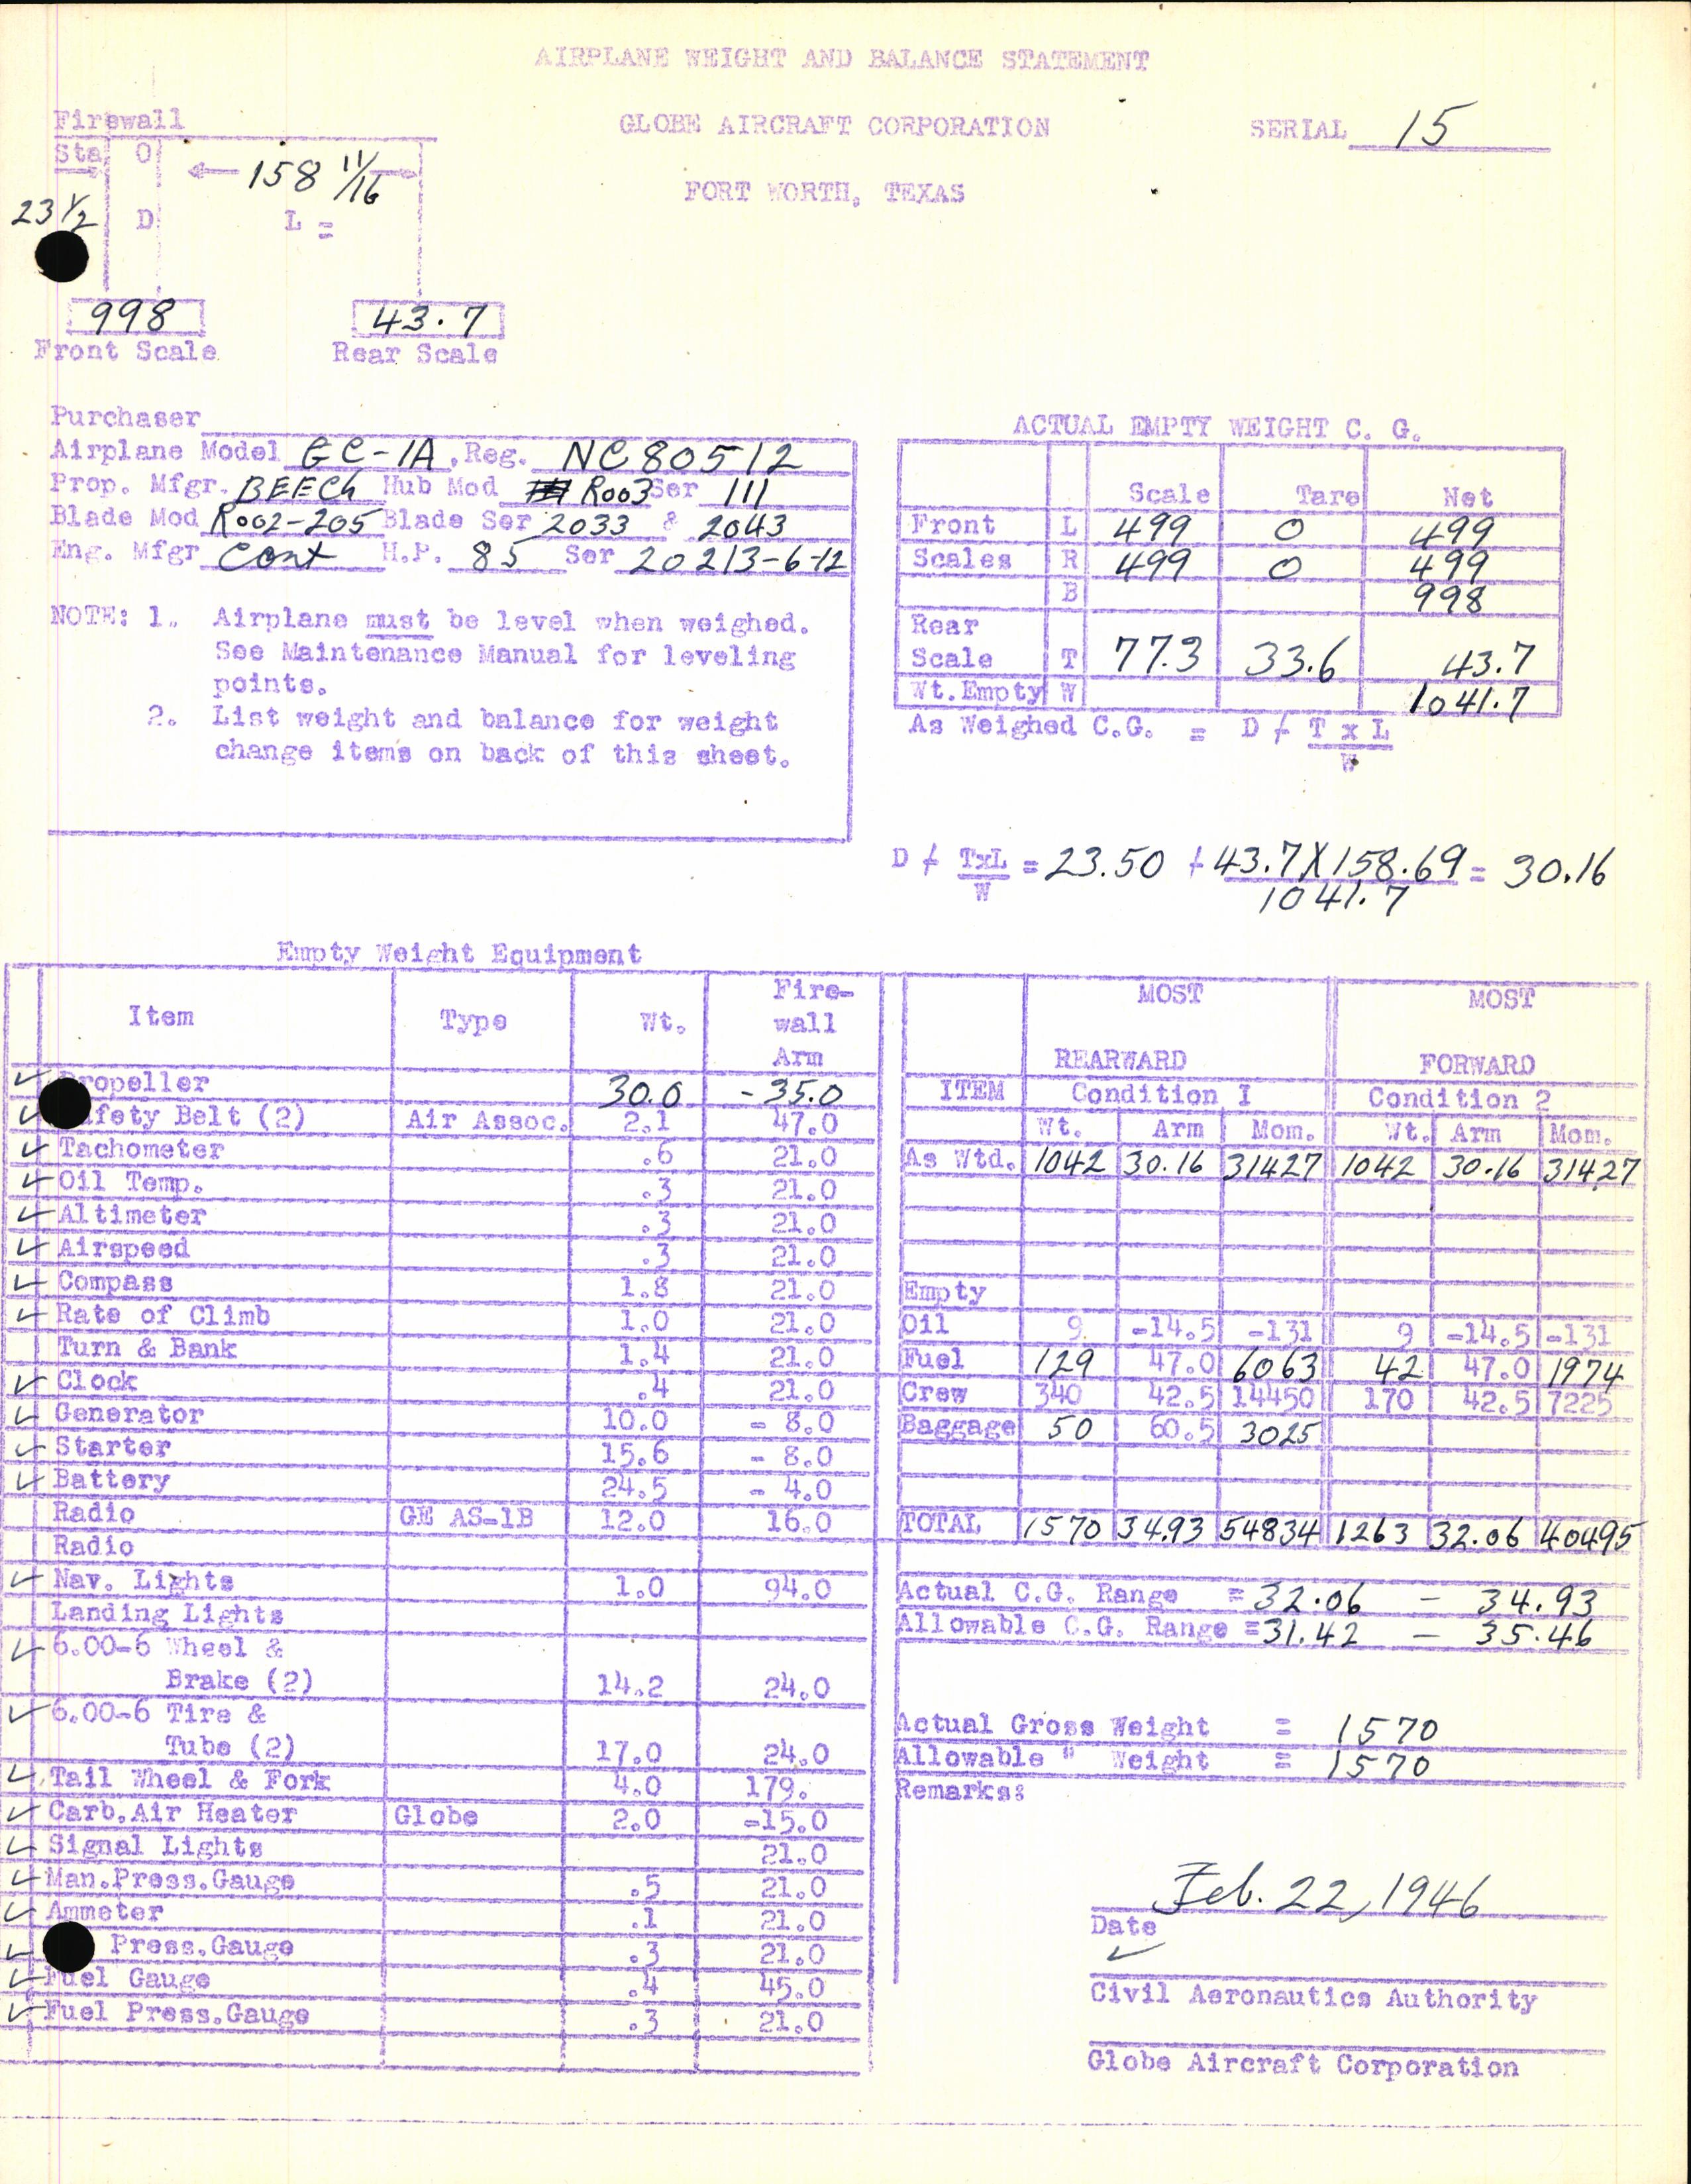 AIRPLANE WEIGHT AND BALANCE STATEMENT
GLOBE AIRCRAFT CORPORATION
SERIAL 15
FORT WORTH, TEXAS
Firewall
Sta 0
158 11/16
23 1/2 D L =
998 43.7
Front Scale Rear Scale
Purchaser
Airplane Model GC-1A, Reg. NC80512
Prop. Mfgr. BEECh Hub Mod R003 Ser 111
Blade Mod R002-205 Blade Ser 2033 & 2043
Eng. Mfgr Cont H.P. 85 Ser 20213-6-12
NOTE: 1. Airplane must be level when weighed.
See Maintenance Manual for leveling
points.
2. List weight and balance for weight
change items on back of this sheet.
ACTUAL EMPTY WEIGHT C. G.
Scale Tare Net
Front L 499 0 499
Scales R 499 0 499
B 998
Rear
Scale T 77.3 33.6 43.7
Wt.Empty W 1041.7
As Weighed C.G. = D + T x L
W
D + TxL = 23.50 + 43.7 X 158.69 = 30.16
W 1041.7
Empty Weight Equipment
Item Type Wt. Fire-
wall
Arm
Propeller 30.0 -35.0
Safety Belt (2) Air Assoc. 2.1 47.0
Tachometer .6 21.0
Oil Temp. .3 21.0
Altimeter .3 21.0
Airspeed .3 21.0
Compass 1.8 21.0
Rate of Climb 1.0 21.0
Turn & Bank 1.4 21.0
Clock .4 21.0
Generator 10.0 - 8.0
Starter 15.6 - 8.0
Battery 24.5 - 4.0
Radio GE AS-1B 12.0 16.0
Radio
Nav. Lights 1.0 94.0
Landing Lights
6.00-6 Wheel &
Brake (2) 14.2 24.0
6.00-6 Tire &
Tube (2) 17.0 24.0
Tail Wheel & Fork 4.0 179.
Carb.Air Heater Globe 2.0 -15.0
Signal Lights 21.0
Man.Press.Gauge .5 21.0
Ammeter .1 21.0
Press.Gauge .3 21.0
Fuel Gauge .4 45.0
Fuel Press.Gauge .3 21.0
MOST MOST
REARWARD FORWARD
ITEM Condition I Condition 2
Wt. Arm Mom. Wt. Arm Mom.
As Wtd. 1042 30.16 31427 1042 30.16 31427
Empty
Oil 9 -14.5 -131 9 -14.5 -131
Fuel 129 47.0 6063 42 47.0 1974
Crew 340 42.5 14450 170 42.5 7225
Baggage 50 60.5 3025
TOTAL 1570 34.93 54834 1263 32.06 40495
Actual C.G. Range = 32.06 - 34.93
Allowable C.G. Range = 31.42 - 35.46
Actual Gross Weight = 1570
Allowable " Weight = 1570
Remarks:
Feb. 22, 1946
Date
Civil Aeronautics Authority
Globe Aircraft Corporation